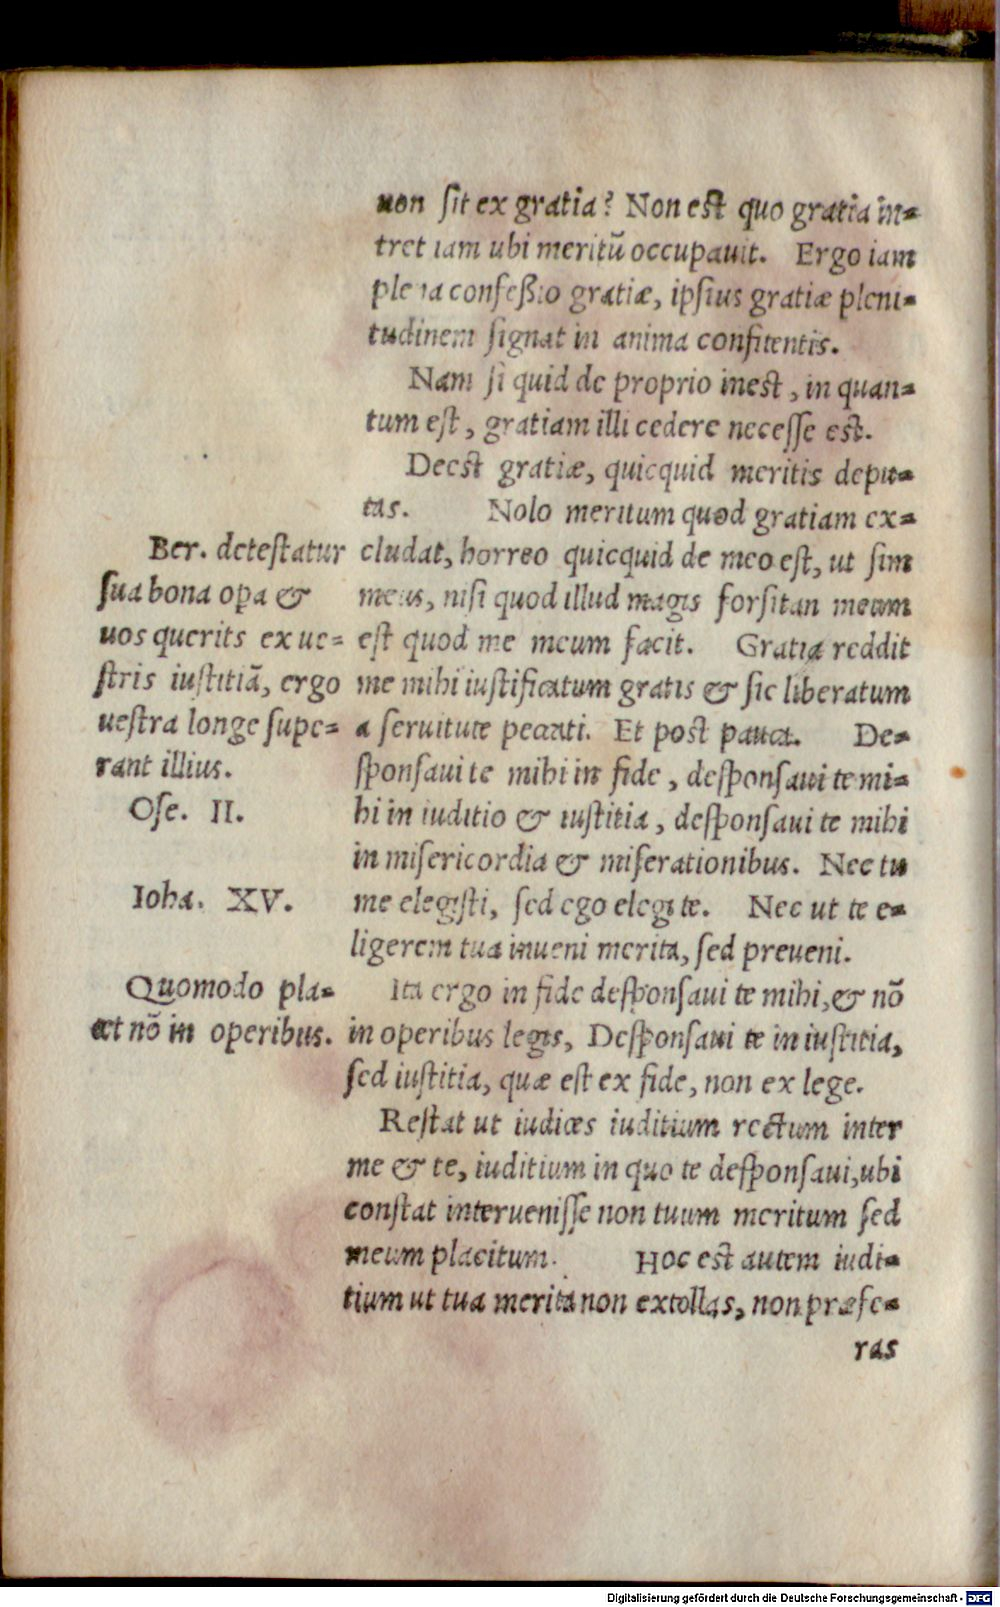 non sit ex gratia? Non est quo gratia in-
tret iam ubi meritū occupauit. Ergo iam
plena confeßio gratiæ, ipsius gratiæ pleni-
tudinem signat in anima confitentis.
Nam si quid de proprio inest, in quan-
tum est, gratiam illi cedere necesse est.
Deest gratiæ, quicquid meritis depu-
tas. Nolo meritum quod gratiam ex-
cludat, horreo quicquid de meo est, ut sim
meus, nisi quod illud magis forsitan meum
est quod me meum facit. Gratia reddit
me mihi iustificatum gratis & sic liberatum
a seruitute peccati. Et post pauca. De-
sponsaui te mihi in fide, desponsaui te mi-
hi in iuditio & iustitia, desponsaui te mihi
in misericordia & miserationibus. Nec tu
me elegisti, sed ego elegi te. Nec ut te e-
ligerem tua inueni merita, sed preueni.
Ita ergo in fide desponsaui te mihi, & nō
in operibus legis, Desponsaui te in iustitia,
sed iustitia, quæ est ex fide, non ex lege.
Restat ut iudices iuditium rectum inter
me & te, iuditium in quo te desponsaui, ubi
constat interuenisse non tuum meritum sed
meum placitum. Hoc est autem iudi-
tium ut tua merita non extollas, non præfe-
ras
Ber. detestatur
sua bona opa &
uos querits ex ue-
stris iustitiā, ergo
uestra longe supe-
rant illius.
Ose. II.
Ioha. XV.
Quomodo pla-
cet nō in operibus.
Digitalisierung gefördert durch die Deutsche Forschungsgemeinschaft - DFG